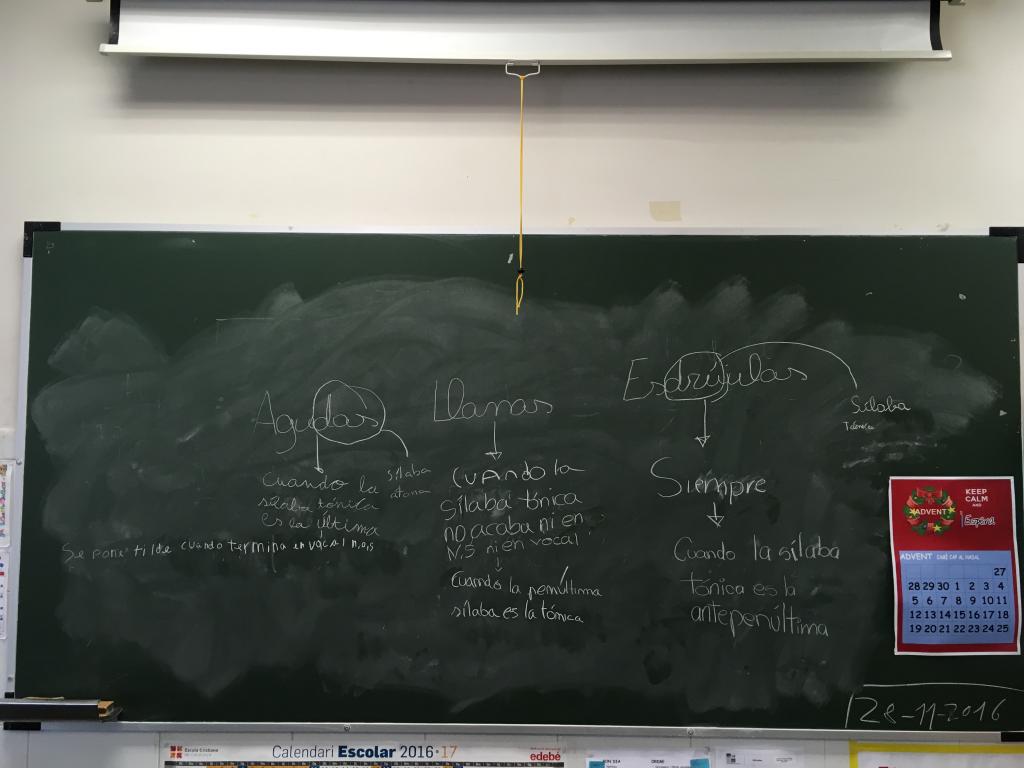 Agudas
Cuando la
sílaba tónica
es la última
sílaba
atona
Se pone tilde cuando termina en vocal n o s
Llanas
CUANDO la
sílaba tónica
no acaba ni en
N,S ni en vocal
Cuando la penúltima
sílaba es la tónica
Esdrújulas
Sílaba
Siempre
Cuando la sílaba
tónica es la
antepenúltima
28-11-2016
KEEP
CALM
AND
Espera
ADVENT
ADVENT CAMÍ CAP AL NADAL
27
28 29 30 1 2 3 4
5 6 7 8 9 10 11
12 13 14 15 16 17 18
19 20 21 22 23 24 25
Escola Cristiana
Calendari Escolar 2016·17
edebé